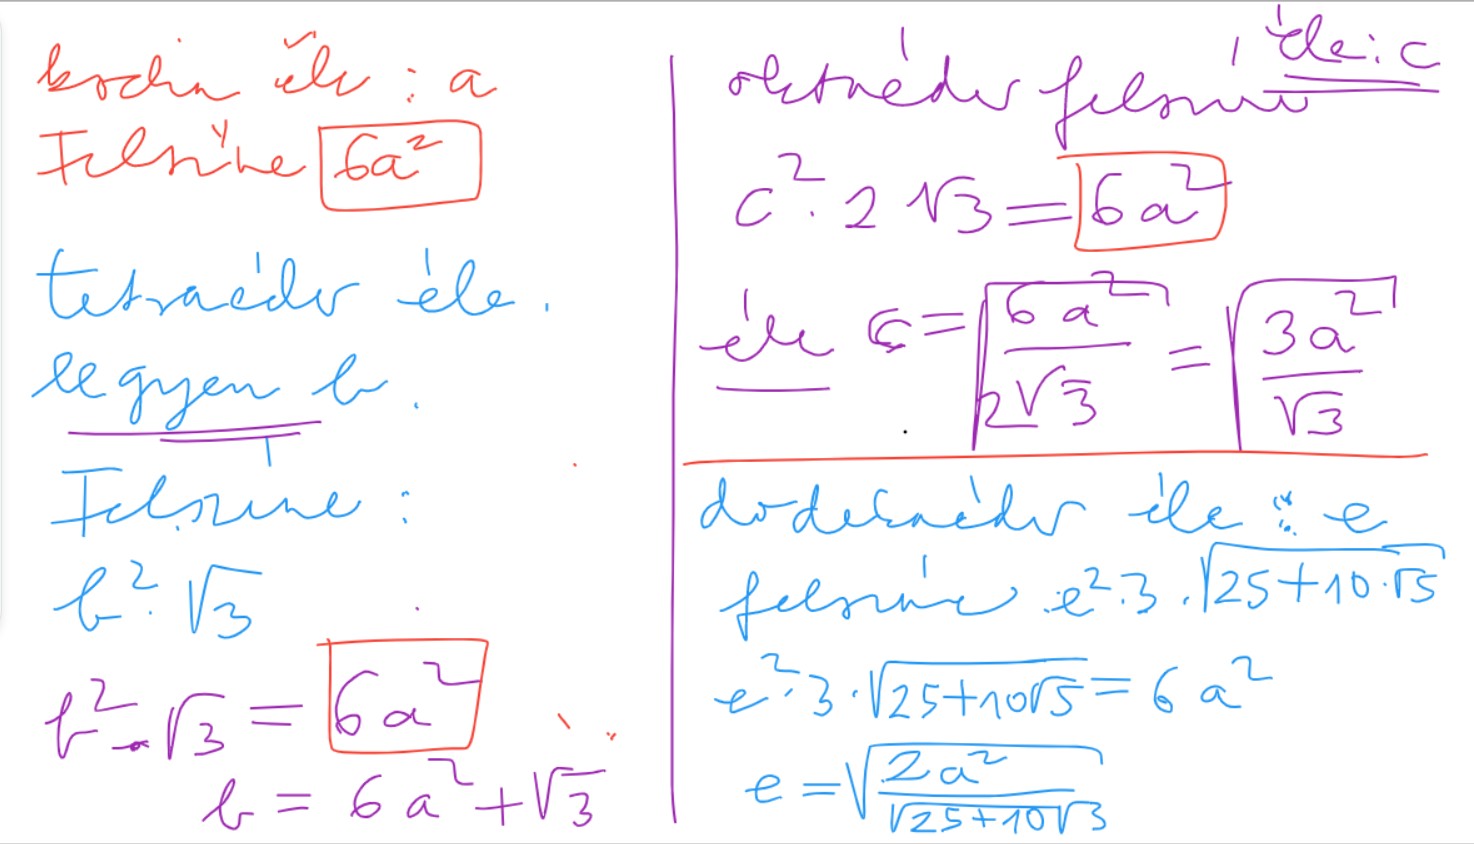 kocka éle : a
Felszíne 6a²
tetraéder éle.
legyen b.
Felszíne :
b² · √3
b² · √3 = 6a²
b = 6a² + √3
oktaéder felszíne éle: c
c² · 2 √3 = 6a²
éle c = √(6a² / 2√3) = √(3a² / √3)
dodekaéder éle : e
felszíne e² · 3 · √(25+10·√5)
e² · 3 · √(25+10√5) = 6a²
e = √(2a² / √(25+10√3))